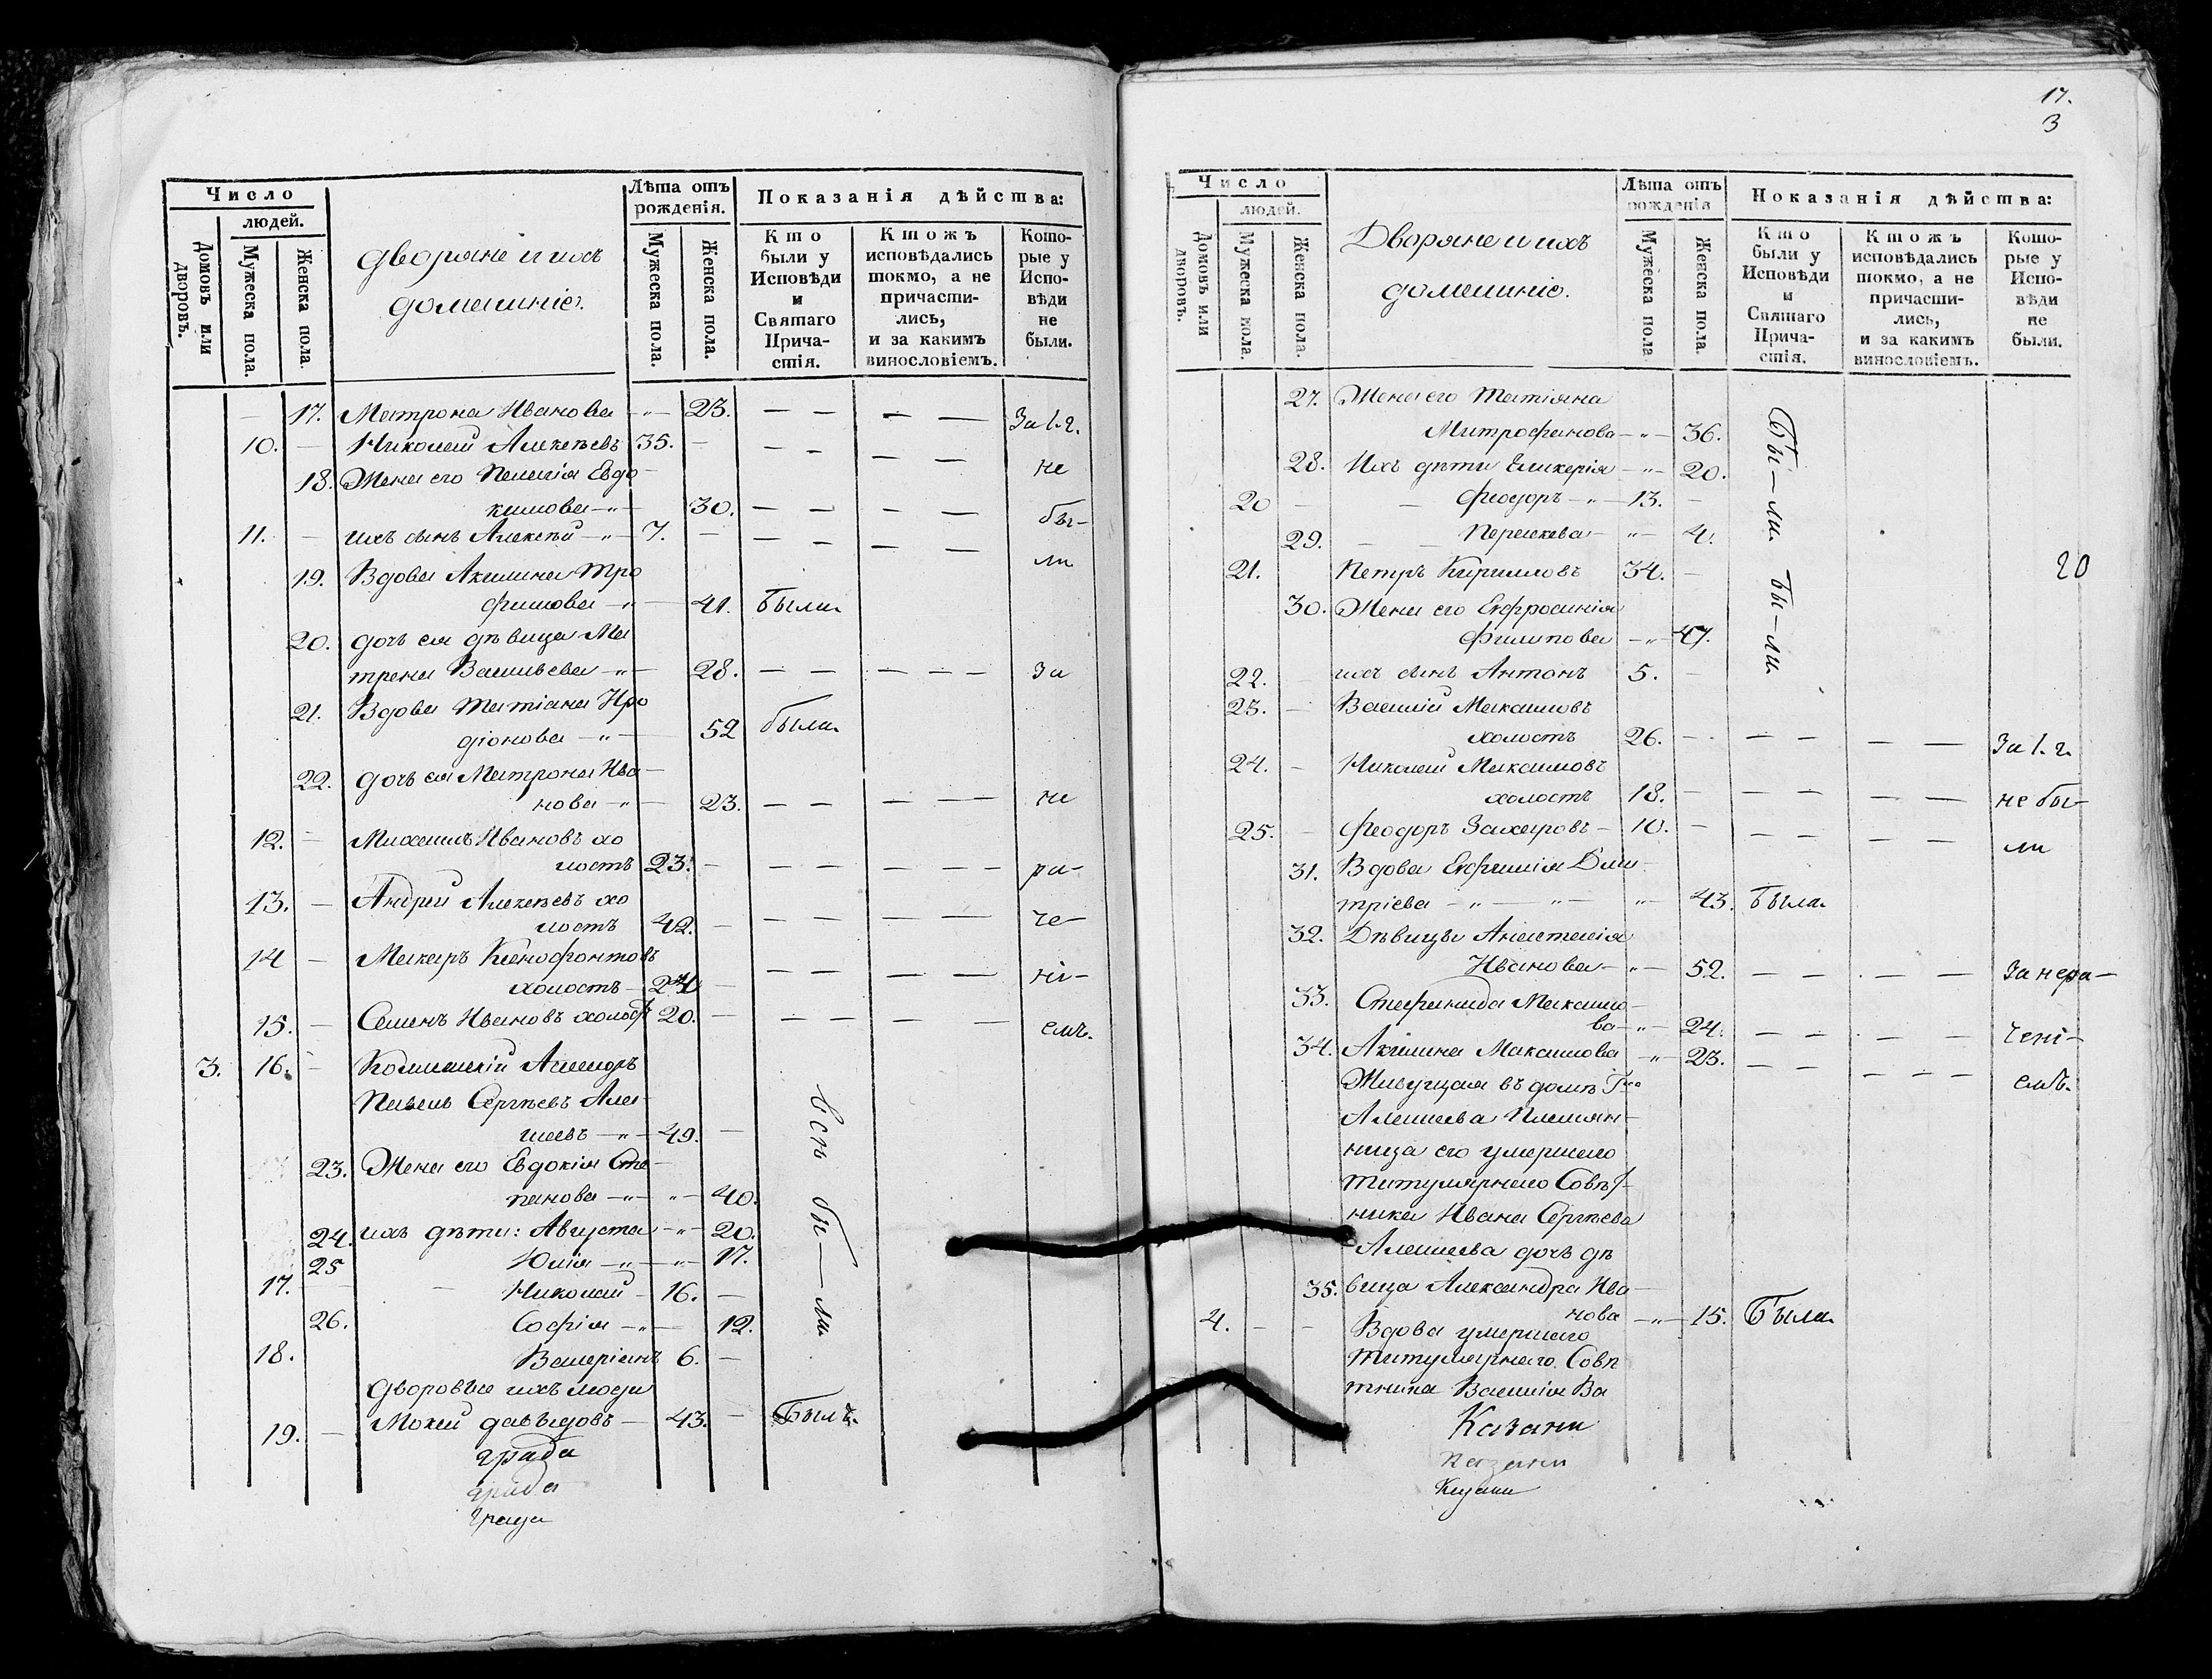 Число
людей.
Домовъ или дворовъ.
Мужеска пола.
Женска пола.
дворяне и ихъ
домашніе.
Лѣта отъ
рожденія.
Мужеска пола.
Женска пола.
Показанія дѣйства:
Кто
были у
Исповѣди
и
Святаго
Прича-
стія.
Ктожъ
исповѣдались
токмо, а не
причасти-
лись,
и за какимъ
винословіемъ.
Кото-
рые у
Испо-
вѣди
не
были.
17. Матрона Иванова 23. За 1. г.
10. Николай Алексѣевъ 35.
18. Жена его Пелагія Евдо не
кимова 30. бы-
11. ихъ сынъ Алексѣй 7. ли
19. Вдова Акилина Тро
фимова 41. Была
20. дочь ея дѣвица Ма
трона Васильева 28. за
21. Вдова Татіана Иро
діонова 52 была
22. дочь ея Матрона Ива
нова 23. не
12. Михаилъ Ивановъ хо
лостъ 23. ра-
13. Андрей Алексѣевъ хо
лостъ 42. че-
14 Макаръ Ксенофонтовъ
холостъ 24 ні-
15. Семенъ Ивановъ холост 20. емъ.
3. 16. Колежскій Ассесоръ
Павелъ Сергѣевъ Але
шеевъ 49.
23. Жена его Евдокія Сте
панова 40.
24. ихъ дѣти: Августа 20.
25 Юлія 17.
17. Николай 16.
26. Софія 12.
18. Валеріанъ 6.
Всѣ бы-ли
дворовые ихъ люди
19. Мокей давыдовъ 43. Былъ.
града
града
града
17.
3
Число
людей.
Домовъ или дворовъ.
Мужеска пола.
Женска пола.
Дворяне и ихъ
домашніе.
Лѣта отъ
рожденія
Мужеска пола
Женска пола.
Показанія дѣйства:
Кто
были у
Исповѣди
и
Святаго
Прича-
стія.
Ктожъ
исповѣдались
токмо, а не
причасти-
лись,
и за какимъ
винословіемъ.
Кото-
рые у
Испо-
вѣди
не
были.
27. Жена его Татіяна
Митрофанова 36.
28. Ихъ дѣти Гликерія 20.
20 Феодоръ 13.
29. Параскева 4.
Бы-ли.
20
21. Петръ Кириловъ 34.
30. Жена его Евфросинія
Филипова 47.
22. ихъ сынъ Антонъ 5.
Бы-ли.
23. Василій Максимовъ
холостъ 26. За 1. г.
24. Николай Максимовъ
холостъ 18. не бы-
25. Феодоръ Захаровъ 10. ли
31. Вдова Евфимія Дми
тріева 43. Была
32. Дѣвицы Анастасія
Иванова 52. За нера-
33. Стефанида Максимо
ва 24. чені-
34. Акилина Максимова 23. емъ.
Живущая въ домѣ Г-на
Алешеева Племян-
ница его умершаго
Титулярнаго Совѣт-
ника Ивана Сергѣева
Алешеева дочь дѣ
35. вица Александра Ива
нова 15. Была
4. Вдова умершаго
Титулярнаго Совѣ
тника Василія Ва
Казани
Казани
Казани